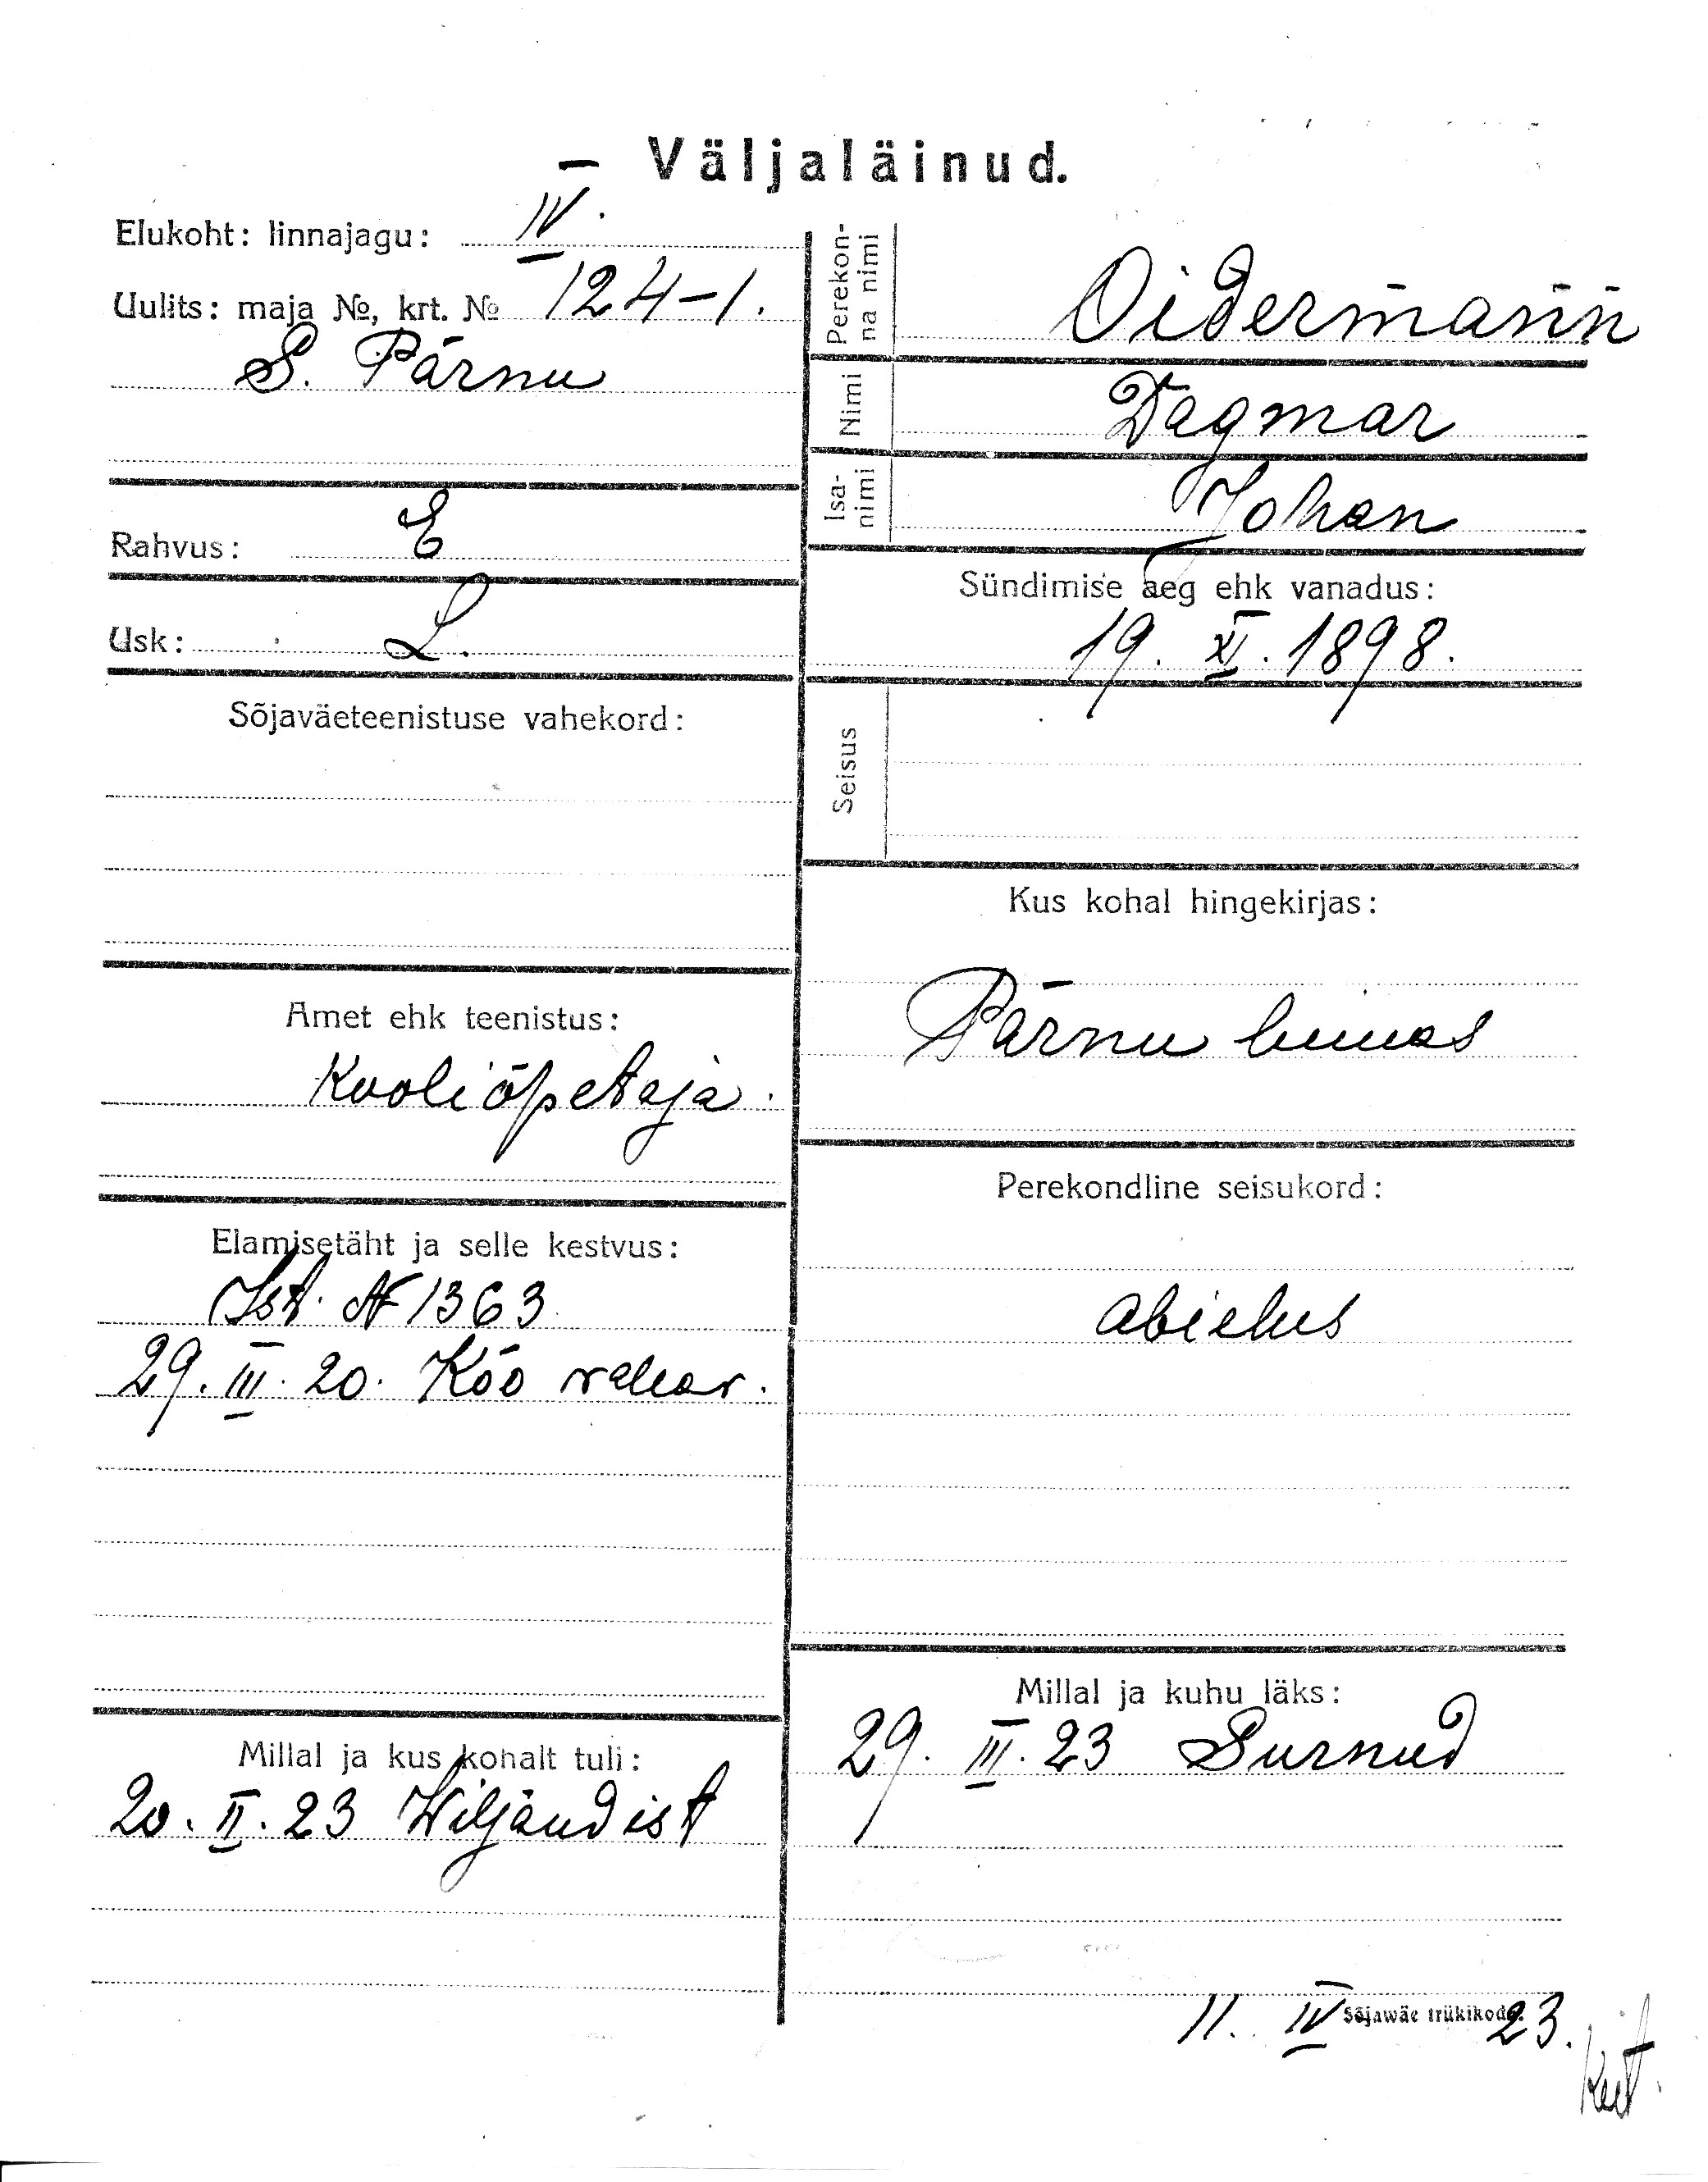 Väljaläinud.
Elukoht: linnajagu: IV.
Uulits: maja №, krt. № 124-1.
S. Pärnu
Rahvus: E
Usk: L.
Sõjaväeteenistuse vahekord:
Amet ehk teenistus:
Kooliõpetaja.
Elamisetäht ja selle kestvus:
Ist. № 1363
29. III. 20. Kõo
Millal ja kus kohalt tuli:
20. II. 23 Wiljandist
Perekonna nimi
Oidermann
Nimi
Dagmar
Isanimi
Johan
Sündimise aeg ehk vanadus:
19. XI. 1898.
Seisus
Kus kohal hingekirjas:
Pärnu linnas
Perekondline seisukord:
abielus
Millal ja kuhu läks:
29. III. 23 Surnud
11. IV 23.
Sõjawäe trükikoda.